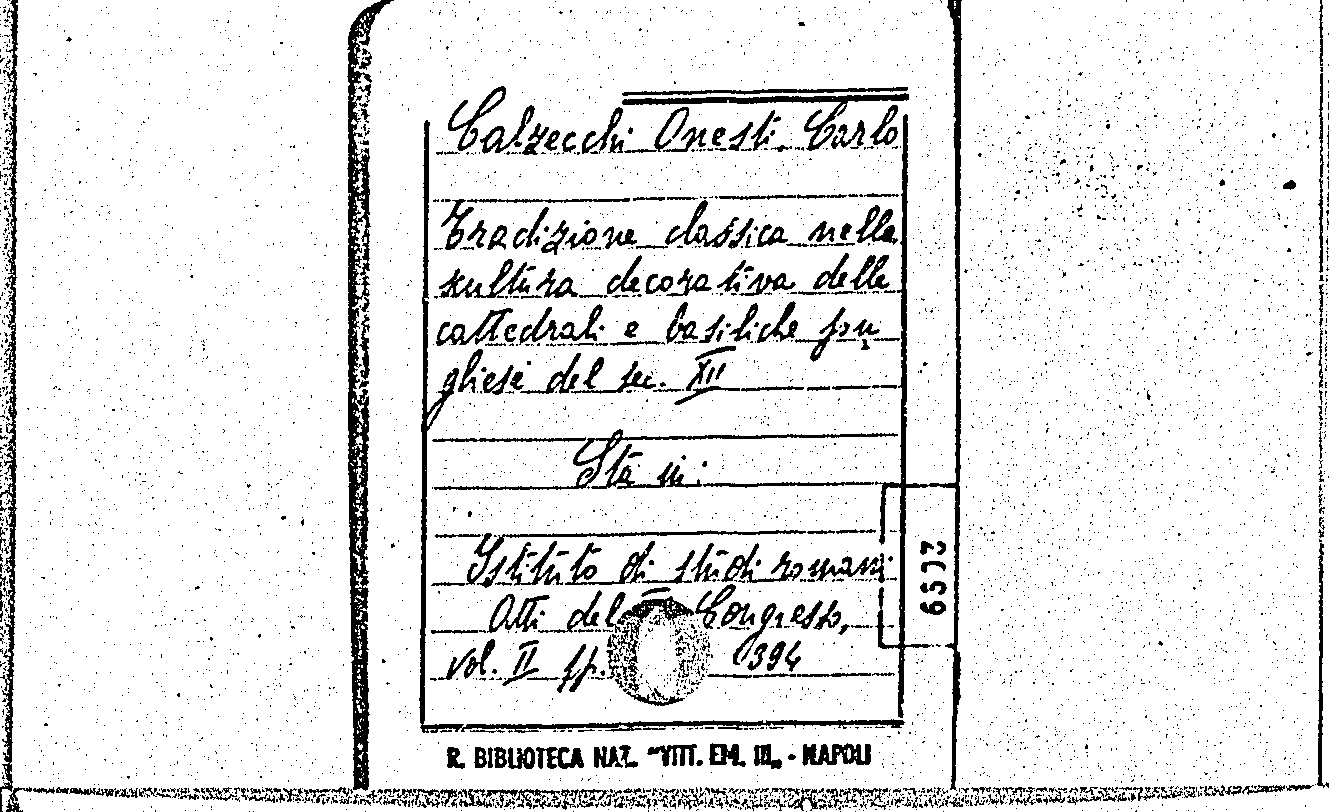 Calzecchi Onesti, Carlo
Tradizione classica nella
scultura decorativa delle
cattedrali e basiliche pu
gliesi del sec. XII
Sta in:
Istituto di studi romani
Atti del Congresso,
vol. II pp. 394
R. BIBLIOTECA NAZ. "VITT. EM. III„ - NAPOLI